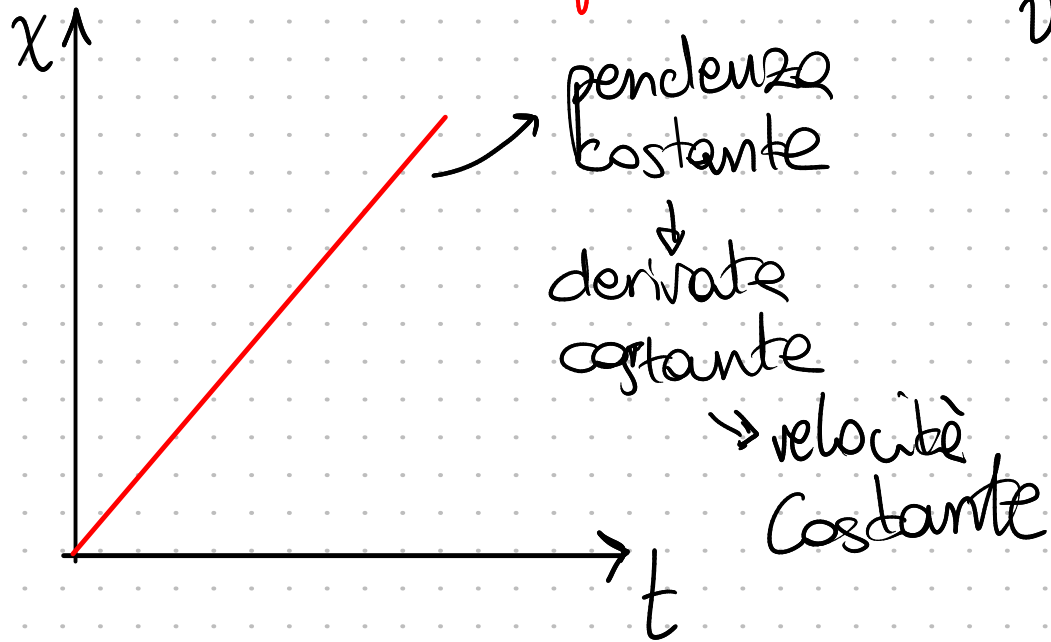 x
pendenza
costante
↓
derivata
costante
→ velocità
costante
t